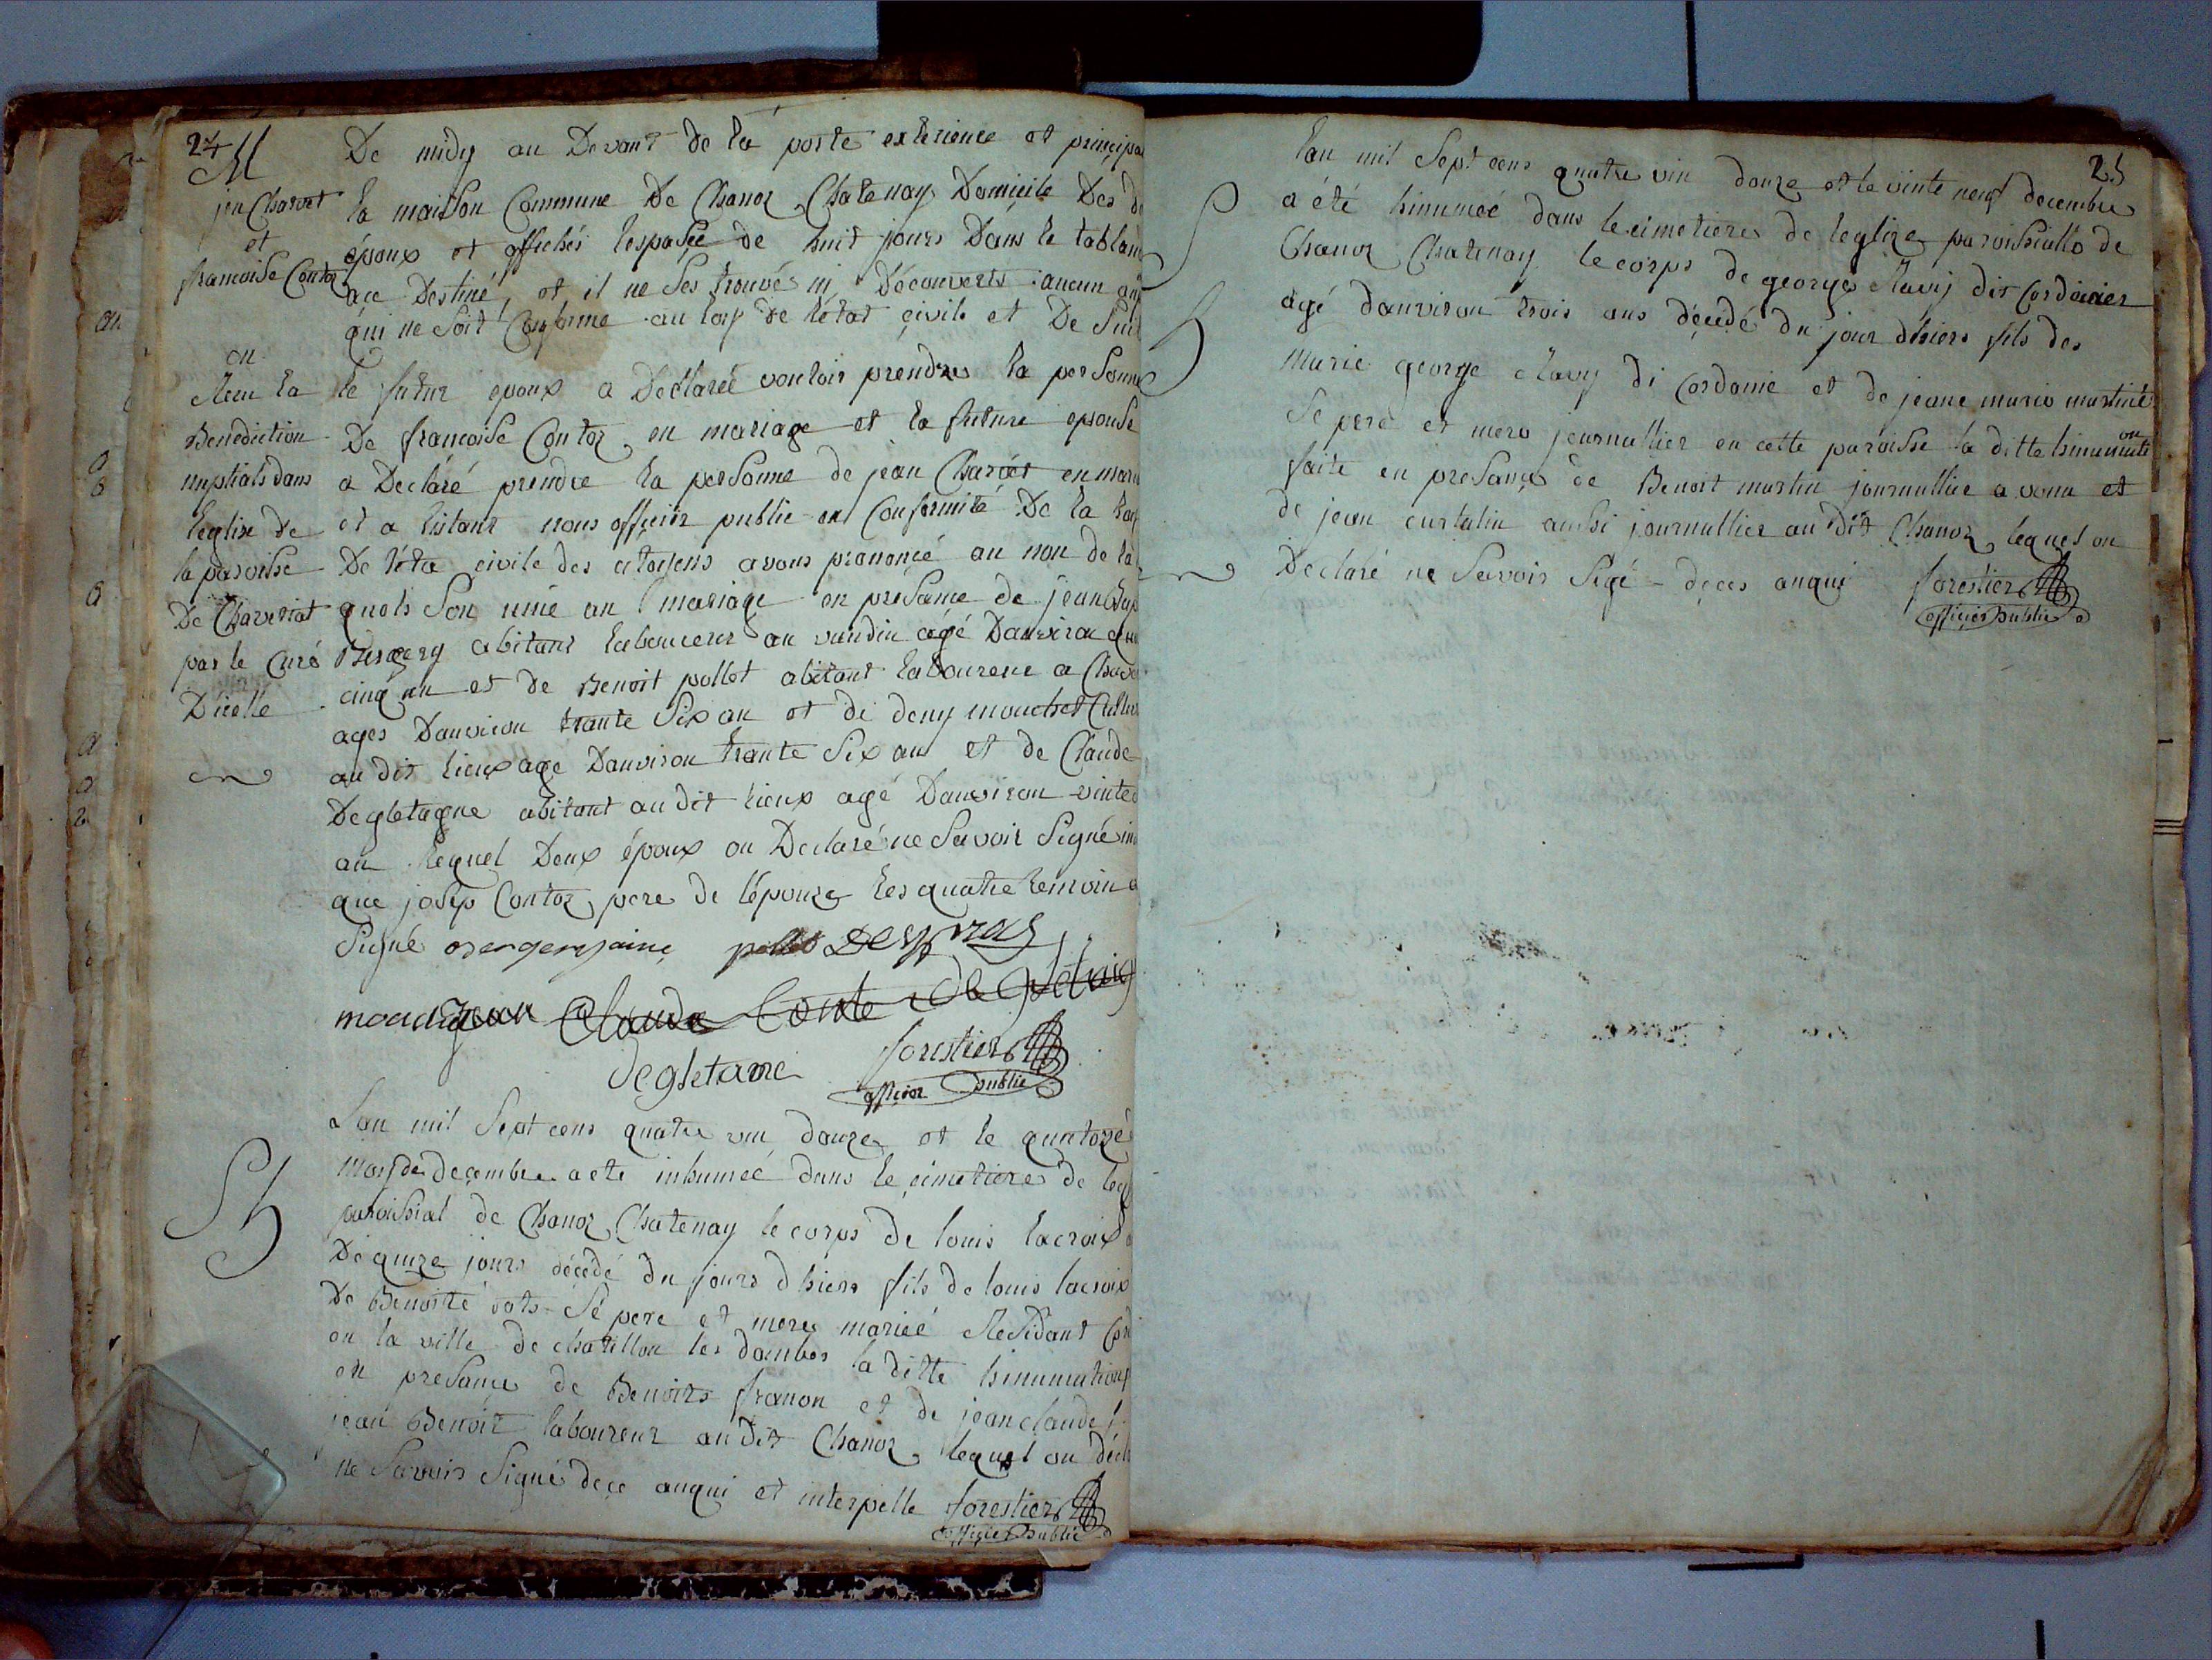 24
M
jen Charvet
et
francoise Contoz
on
Recu la
Benediction
nuptials dans
leglise de
la paroisse
De Chaveriat
par le Curé
Dicelle
De midy au Devant de la porte exterieure et principa
la maison Commune De Chanoz Chatenay Domicile Des d
époux et affichés lespasçe de huit jours Dans le tablau
ace Destiné, et il ne ses trouvé ni Découverts aucun
qui ne soit Conforme au loy de létat civile et De Suit
le futur epoux a Declareé vouloir prendre la personne
De francoise Contoz en mariage et la future epouse
a Declaré prendre la personne de jean Charvet en maria
et a listant nous officier public en Conformité De la loy
De léta civile des citoyens avons prononcé au non de la
quels Son unie an mariage en presance de jean
abitant laboureur au vandin agé Danviron
cinq an et de Benoit pollet abitant laboureur a Chave
ages Danviron trante Six an et de deny mouchet
au dit lieux age Danviron trante Six an et de Claude
Degletagne abitant au dit lieux agé Danviron vinte
an lequel Deux époux on Declaré ne Savoir Signé
que josep Contoz pere de lépouze les quatre temoin
Signé
Claude Conte
degletane
forestier
officier public
Lan mil Sept cens quatre vin douze et le quatorze
mois de decembre a ete inhumeé dans le cimetiere de leg
paroissial de Chanoz Chatenay le corps de louis lacroix
De quize jours décedé du jours dhiers fils de louis lacroix
De Benoite vots Sé pere et mere marieé Residant
en la ville de chatillon les dombes la ditte hinumation
en presance de Benoits franon et de jean claude
jean Benoit laboureur au dit Chanoz lequel on décl
ne Savoir Signé dece anqui et interpelle forestier
officier public
25
lan mil Sept cens quatre vin douze et le vinte neuf decembre
a été hinumeé dans le cimetiere de leglize paroissialle de
Chanoz Chatenay le corps de george Ravy dit Cordonier
agé danviron trois ans décedé du jour dhiers fils des
marie george Ravy di Cordonie et de jeane marie martine
Se pere et mere journallier en cette paroisse la ditte hinumation
faite en presance de Benoit martin journallier a vonu et
de jean curtalin aussi journallier au dit Chanoz lequel on
Declaré ne Savoir Sigé deces anqui forestier
officier public